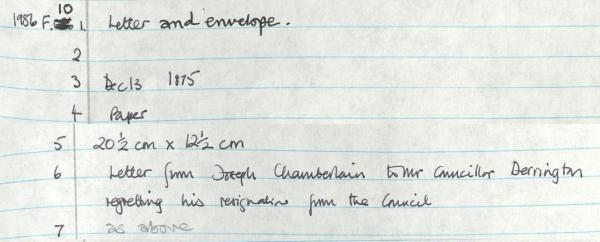 1986 F. 10 1. Letter and envelope.
2
3 Dec 13 1875
4 Paper
5 20 ½ cm x 12½ cm
6 Letter from Joseph Chamberlain to Mr Councillor Derrington
regretting his resignation from the Council
7 as above